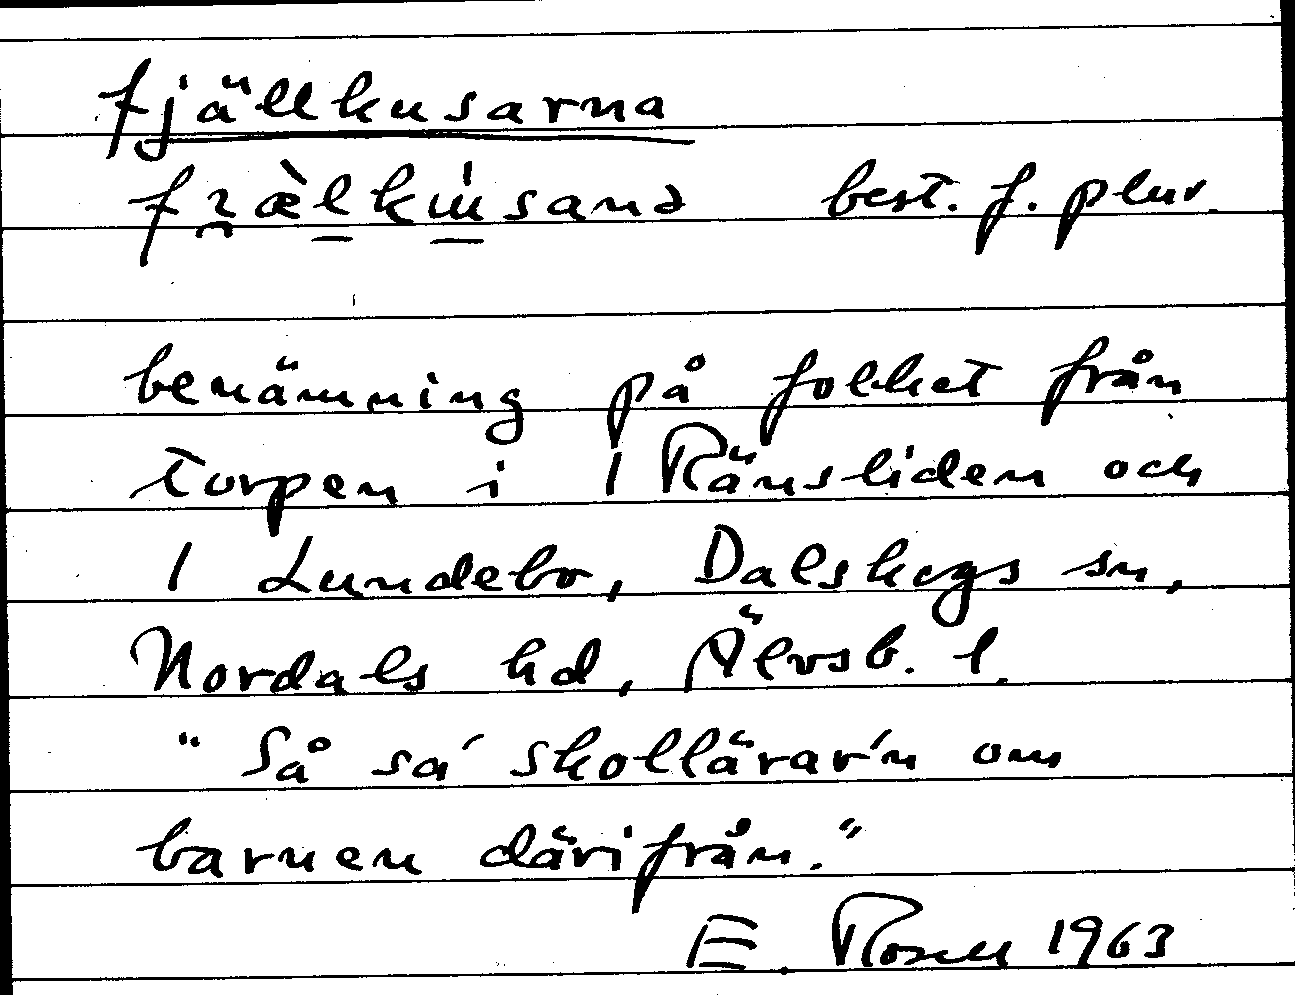 fjällkusarna
best. f. plur.
benämning på folket från
torpen i / Ränsliden och
/ Lundebo, Dalskogs sn,
Nordals hd, Älvsb. l.
"Så sa' skollärar'n om
barnen därifrån."
E. Rosell 1963